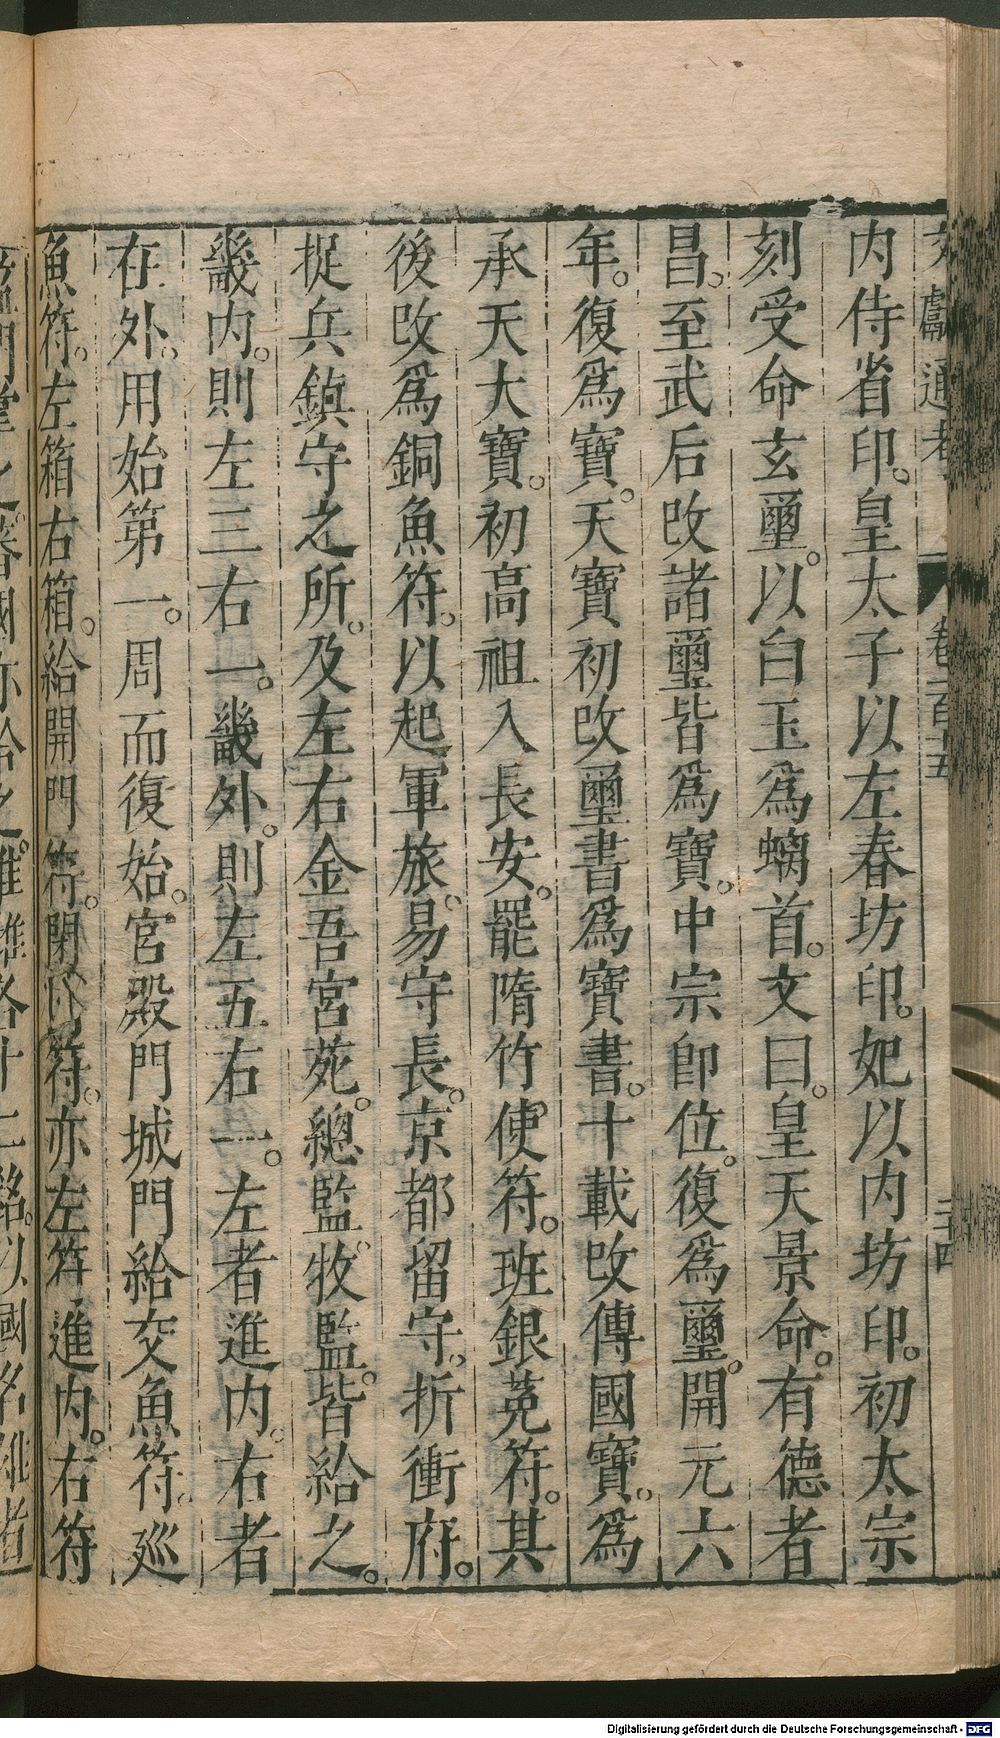 文獻通考 卷一百十五 二十四
内侍省印。皇太子以左春坊印。妃以内坊印。初太宗
刻受命玄璽。以白玉爲螭首。文曰。皇天景命。有德者
昌。至武后改諸璽皆爲寶。中宗卽位。復爲璽。開元六
年。復爲寶。天寶初改璽書爲寶書。十載改傳國寶。爲
承天大寶。初高祖入長安。罷隋竹使符。班銀菟符。其
後改爲銅魚符。以起軍旅。易守長。京都留守。折衝府。
捉兵鎮守之所。及左右金吾宮苑。總監。牧監。皆給之。
畿内。則左三右一。畿外。則左五右一。左者進内。右者
在外。用始第一。周而復始。宮殿門城門給交魚符。廵
魚符。左箱右箱。給開門符。閉門符。亦左符進内。右符
Digitalisierung gefördert durch die Deutsche Forschungsgemeinschaft - DFG